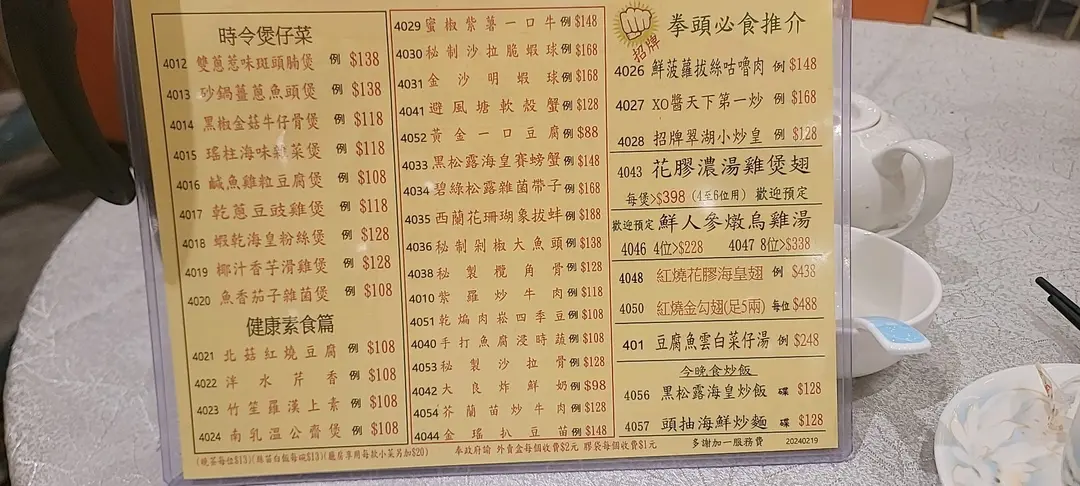 時令煲仔菜
4012 雙蔥惹味斑頭腩煲 例 $138
4013 砂鍋薑蔥魚頭煲 例 $138
4014 黑椒金菇牛仔骨煲 例 $118
4015 瑤柱海味雜菜煲 例 $118
4016 鹹魚雞粒豆腐煲 例 $108
4017 乾蔥豆豉雞煲 例 $118
4018 蝦乾海皇粉絲煲 例 $128
4019 椰汁香芋滑雞煲 例 $128
4020 魚香茄子雜菌煲 例 $108
健康素食篇
4021 北菇紅燒豆腐 例 $108
4022 洋水芹香 例 $108
4023 竹笙羅漢上素 例 $108
4024 南乳溫公齋煲 例 $108
4029 蜜椒紫薯一口牛 例 $148
4030 秘制沙拉脆蝦球 例 $168
4031 金沙明蝦球 例 $168
4041 避風塘軟殼蟹 例 $128
4052 黃金一口豆腐 例 $88
4033 黑松露海皇賽螃蟹 例 $148
4034 碧綠松露雜菌帶子 例 $168
4035 西蘭花珊瑚象拔蚌 例 $188
4036 秘制剁椒大魚頭 例 $138
4038 秘製欖角骨 例 $128
4010 紫羅炒牛肉 例 $118
4051 乾煸肉崧四季豆 例 $108
4040 手打魚腐浸時蔬 例 $108
4053 秘製沙拉骨 例 $128
4042 大良炸鮮奶 例 $98
4054 芥蘭苗炒牛肉 例 $128
4044 金瑤扒豆苗 例 $148
招牌
拳頭必食推介
4026 鮮菠蘿拔絲咕嚕肉 例 $148
4027 XO醬天下第一炒 例 $168
4028 招牌翠湖小炒皇 例 $128
4043 花膠濃湯雞煲翅
每煲>$398 (4至6位用) 歡迎預定
歡迎預定 鮮人參燉烏雞湯
4046 4位>$228 4047 8位>$338
4048 紅燒花膠海皇翅 例 $438
4050 紅燒金勾翅(足5兩) 每位 $488
401 豆腐魚雲白菜仔湯 例 $248
今晚食炒飯
4056 黑松露海皇炒飯 碟 $128
4057 頭抽海鮮炒麵 碟 $128
(晚茶每位$13)(絲苗白飯每碗$13)(廳房享用每款小菜另加$20) 奉政府諭 外賣盒每個收費2元 膠袋每個收費1元 多謝加一服務費 20240219